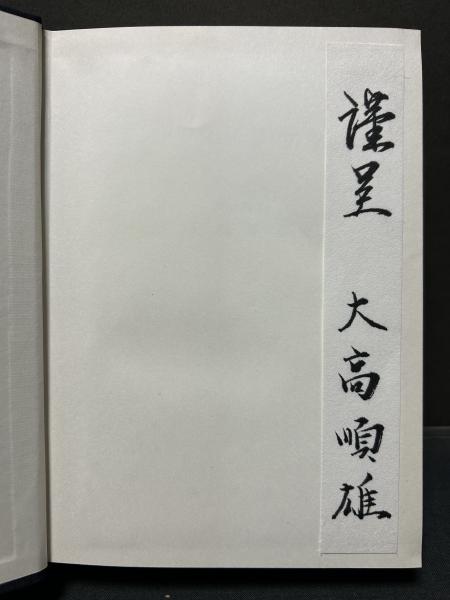 謹呈 大高順雄